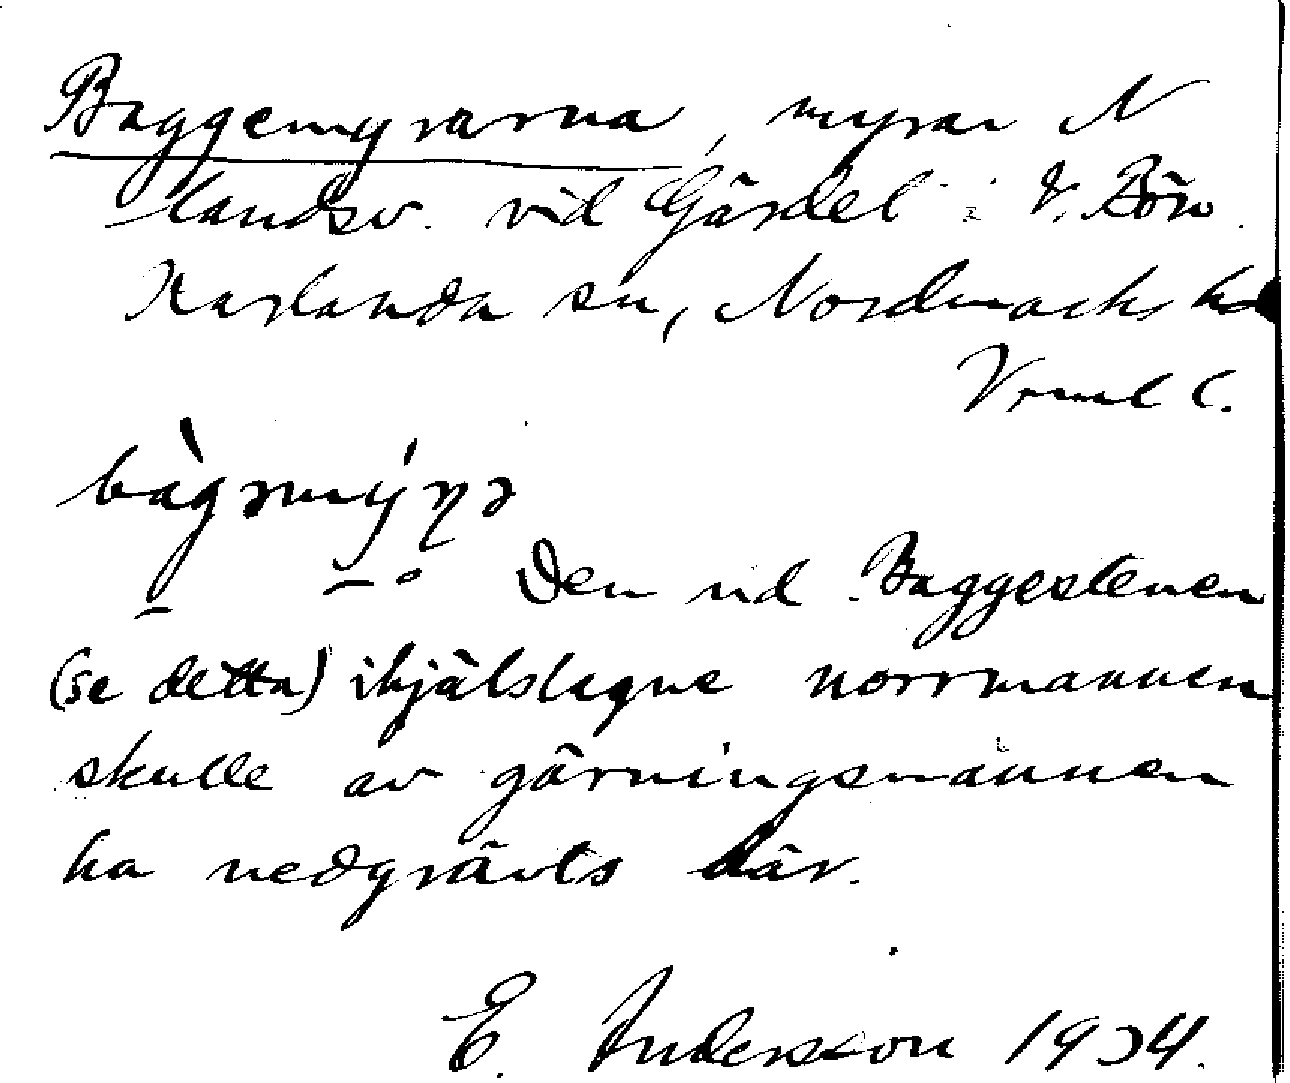 Baggemyrarna, myrar N
landsv. vid Gärdet i V. Bön.
Karlanda sn, Nordmarks hd
Vrml l.
bàgəmýɳə
Den vid Baggestenen
(se detta) ihjälslagne norrmannen
skulle av gärningsmännen
ha nedgrävts där.
E. Andersson 1934.